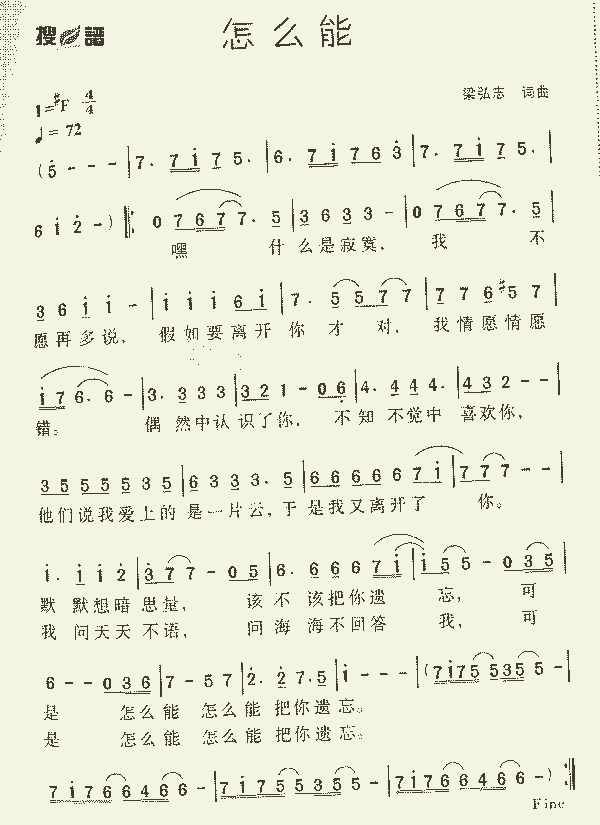 搜谱
怎么能
1=#F 4/4
梁弘志 词曲
♩= 72
(5 - - - | 7. 7 i 7 5. | 6. 7 i 7 6 3 | 7. 7 i 7 5. |
6 i 2 - ) ‖: 0 7 6 7 7. 5 | 3 6 3 3 - | 0 7 6 7 7. 5 |
嘿 什么是寂寞, 我 不
3 6 i i - | i i i 6 i | 7. 5 5 7 7 | 7 7 6 #5 7 |
愿再多说, 假如要离开你才 对, 我情愿情愿
i 7 6. 6 - | 3. 3 3 3 | 3 2 1 - 0 6 | 4. 4 4 4. | 4 3 2 - - |
错。 偶 然中认识了你, 不知 不觉中 喜欢你,
3 5 5 5 5 3 5 | 6 3 3 3. 5 | 6 6 6 6 6 7 i | 7 7 7 - - |
他们说我爱上的是一片云,于是我又离开了 你。
i. i i 2 | 3 7 7 - 0 5 | 6. 6 6 6 7 i | i 5 5 - 0 3 5 |
默 默想暗 思量, 该不 该把你遗 忘, 可
我 问天天不语, 问海 海不回答 我, 可
6 - - 0 3 6 | 7 - 5 7 | 2. 2 7. 5 | i - - - | (7 i 7 5 5 5 3 5 5 -
是 怎么能 怎么能 把你遗忘。
是 怎么能 怎么能 把你遗忘。
7 i 7 6 6 4 6 6 - | 7 i 7 5 5 3 5 5 - | 7 i 7 6 6 4 6 6 - ) :‖
Fine